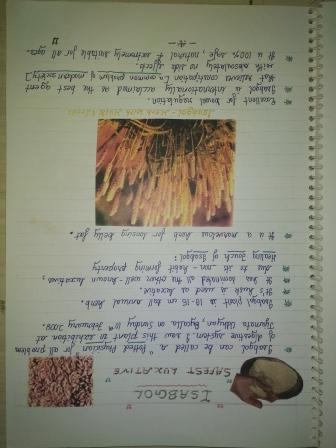 ISABGOL
SAFEST LAXATIVE
Isabgol can be called a "Potted Physician for all problem
of digestive system. I saw this plant in exhibition at
Jijamata Udyan, Byculla on Sunday 10th February 2008.
Isabgol plant is 16-18 cm tall annual herb.
It's husk is used as laxative.
It has dominated all the other well-known laxatives
due to its non-habit forming property
Healing Touch of Isabgol:
It is a marvelous herb for loosing belly fat.
Isabgol - Herb with Milk
Excellent for bowel regulation.
Isabgol is internationally acclaimed as the best agent
that relieves constipation [a common problem of modern society]
with absolutely no side effects.
It is 100% safe, natural & extremely suitable for all ages.